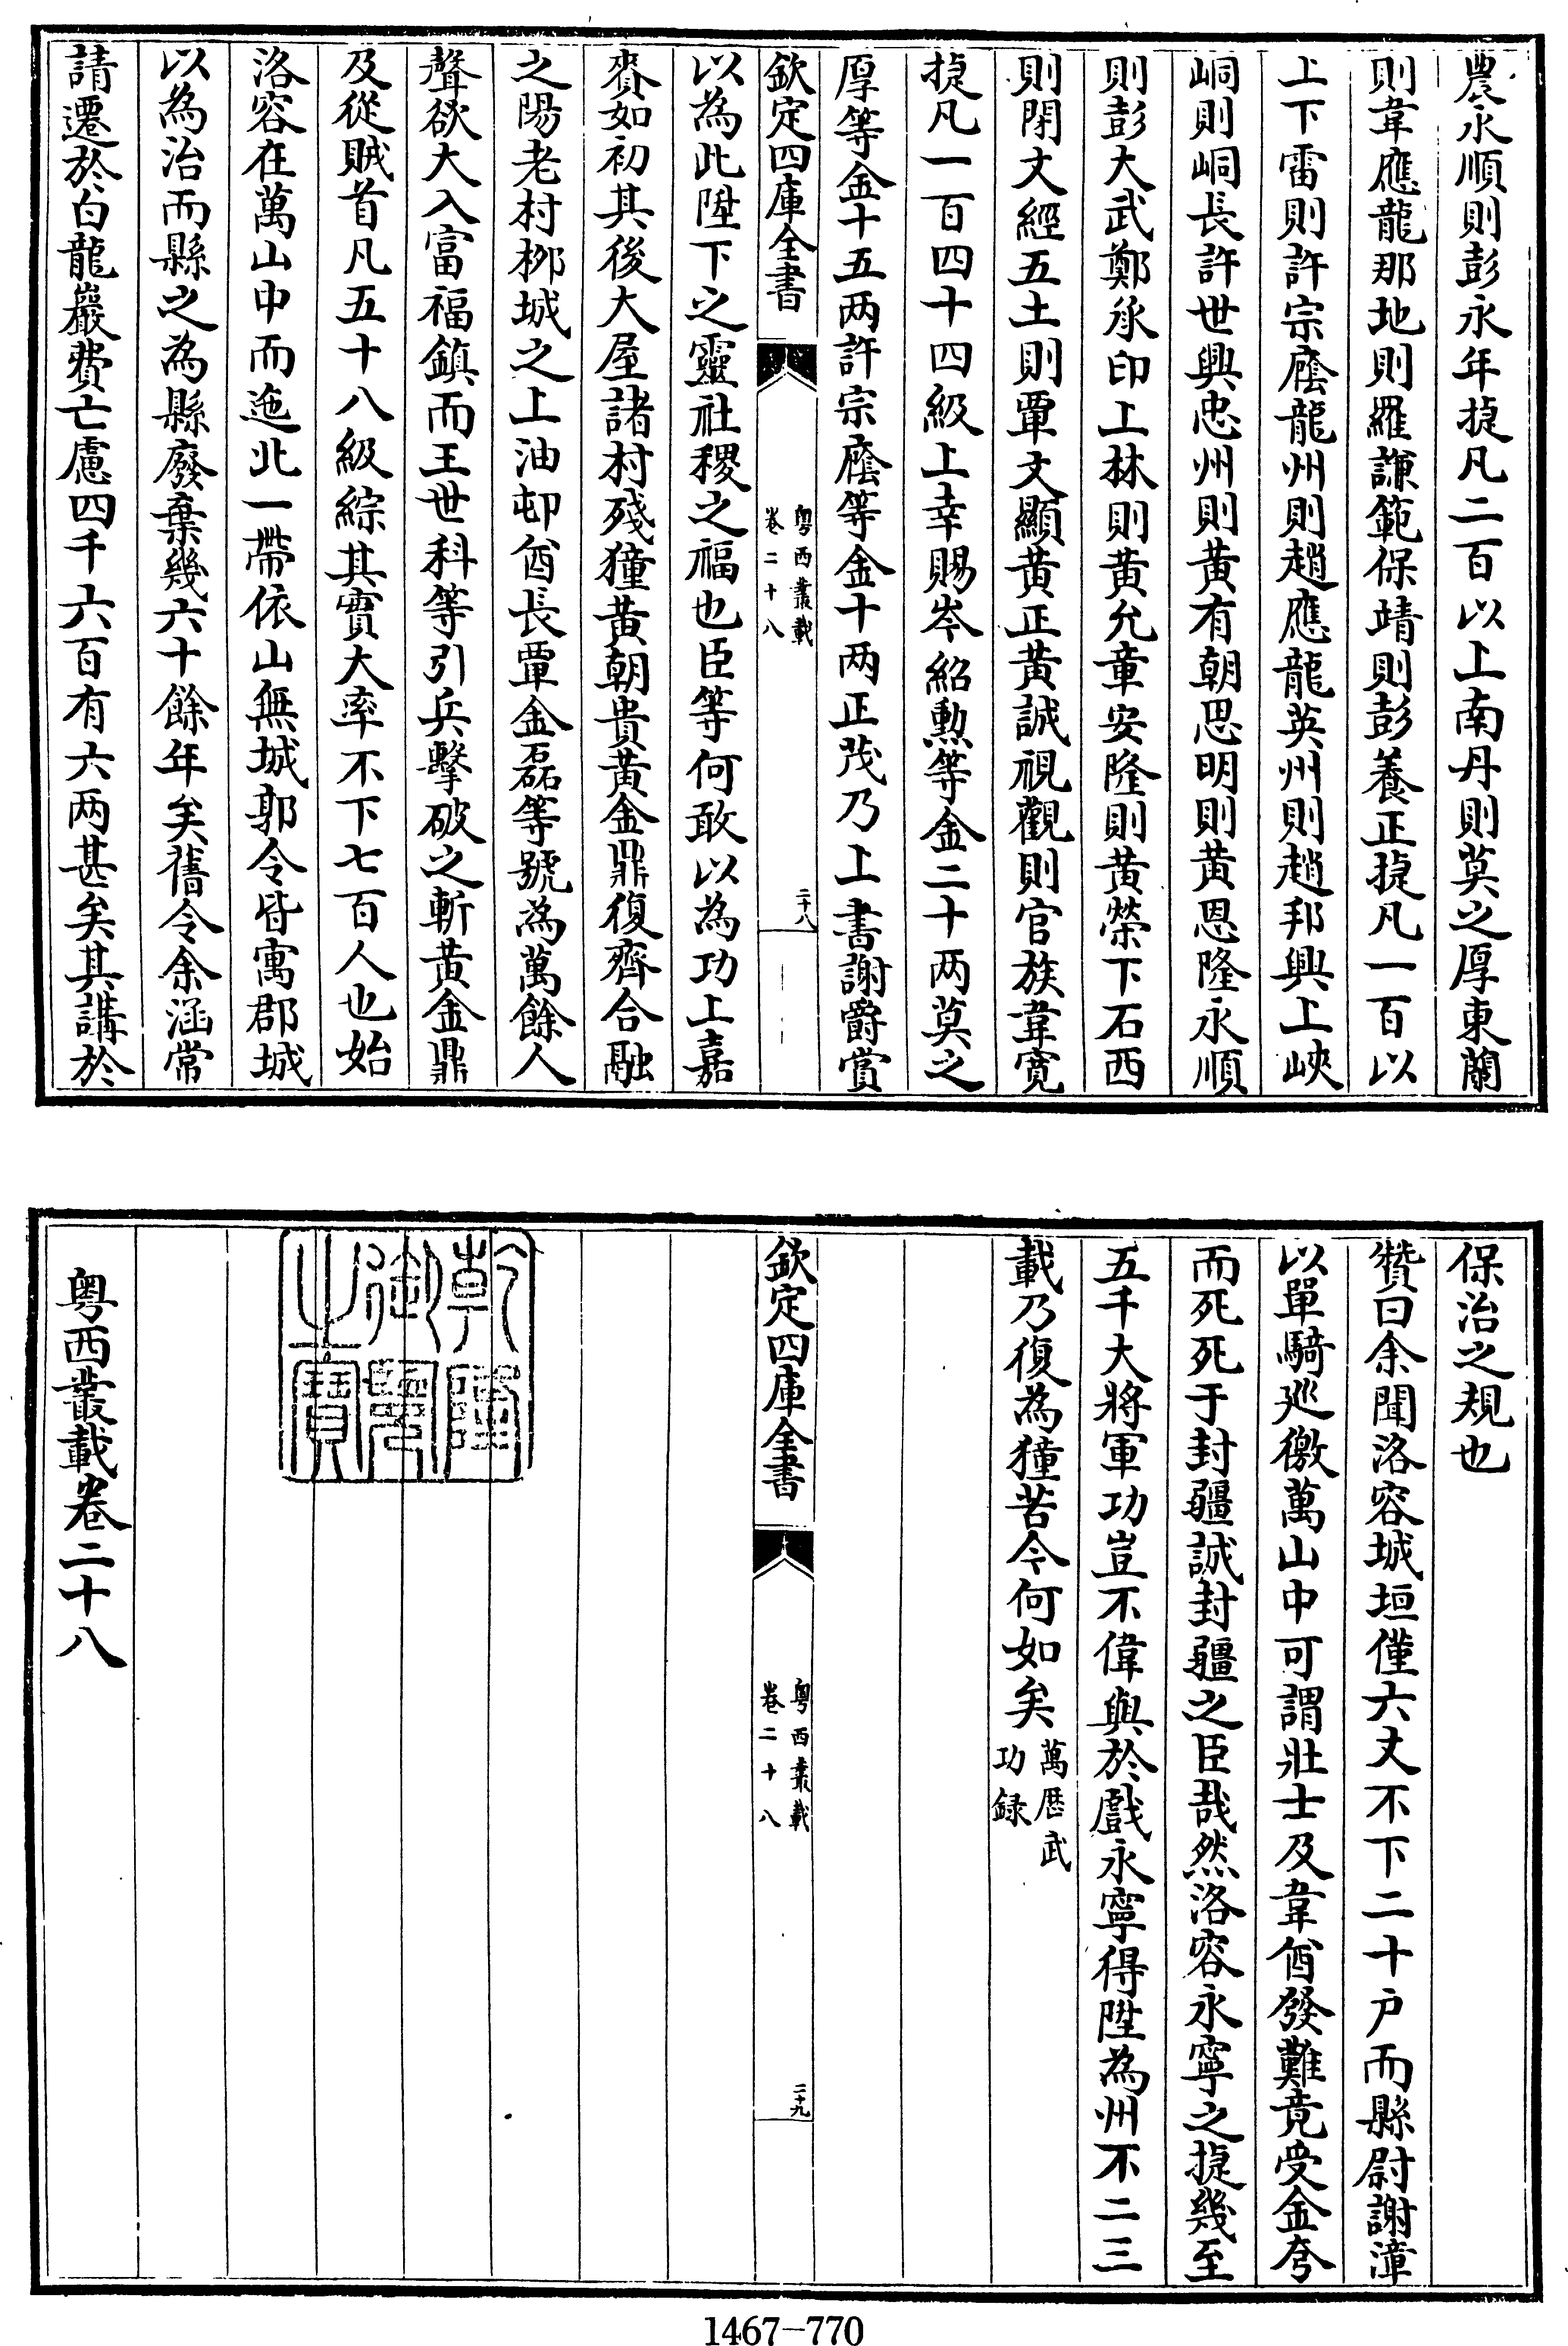 農永順則彭永年捷凡二百以上南丹則莫之厚東蘭
則韋應龍那地則羅謙範保靖則彭養正捷凡一百以
上下雷則許宗廕龍州則趙應龍英州則趙邦興上峽
峒則峒長許世興忠州則黃有朝思明則黃恩隆永順
則彭大武鄭承印上林則黃允章安隆則黃榮下石西
則閉文經五土則覃文顯黃正黃誠視觀則官族韋寬
捷凡一百四十四級上幸賜岑紹勲等金二十兩莫之
厚等金十五兩許宗廕等金十兩正茂乃上書謝爵賞
欽定四庫全書
粤西叢載
卷二十八
二十八
以為此陞下之靈社稷之福也臣等何敢以為功上嘉
賚如初其後大屋諸村殘獞黃朝貴黃金鼎復齊合融
之陽老村栁城之上油邨酋長覃金磊等號為萬餘人
聲欲大入富福鎮而王世科等引兵擊破之斬黃金鼎
及從賊首凡五十八級綜其實大率不下七百人也始
洛容在萬山中而迤北一帶依山無城郭令皆寓郡城
以為治而縣之為縣廢棄幾六十餘年矣舊令余涵常
請遷於白龍巖費亡慮四千六百有六兩甚矣其講於
保治之規也
贊曰余聞洛容城垣僅六丈不下二十户而縣尉謝漳
以單騎廵徼萬山中可謂壯士及韋酋發難竟受金夸
而死死于封疆誠封疆之臣哉然洛容永寧之捷幾至
五千大將軍功豈不偉與於戲永寧得陞為州不二三
載乃復為獞苦今何如矣
萬歴武
功録
欽定四庫全書
粤西叢載
卷二十八
二十九
乾隆御覽之寶
粤西叢載卷二十八
1467-770